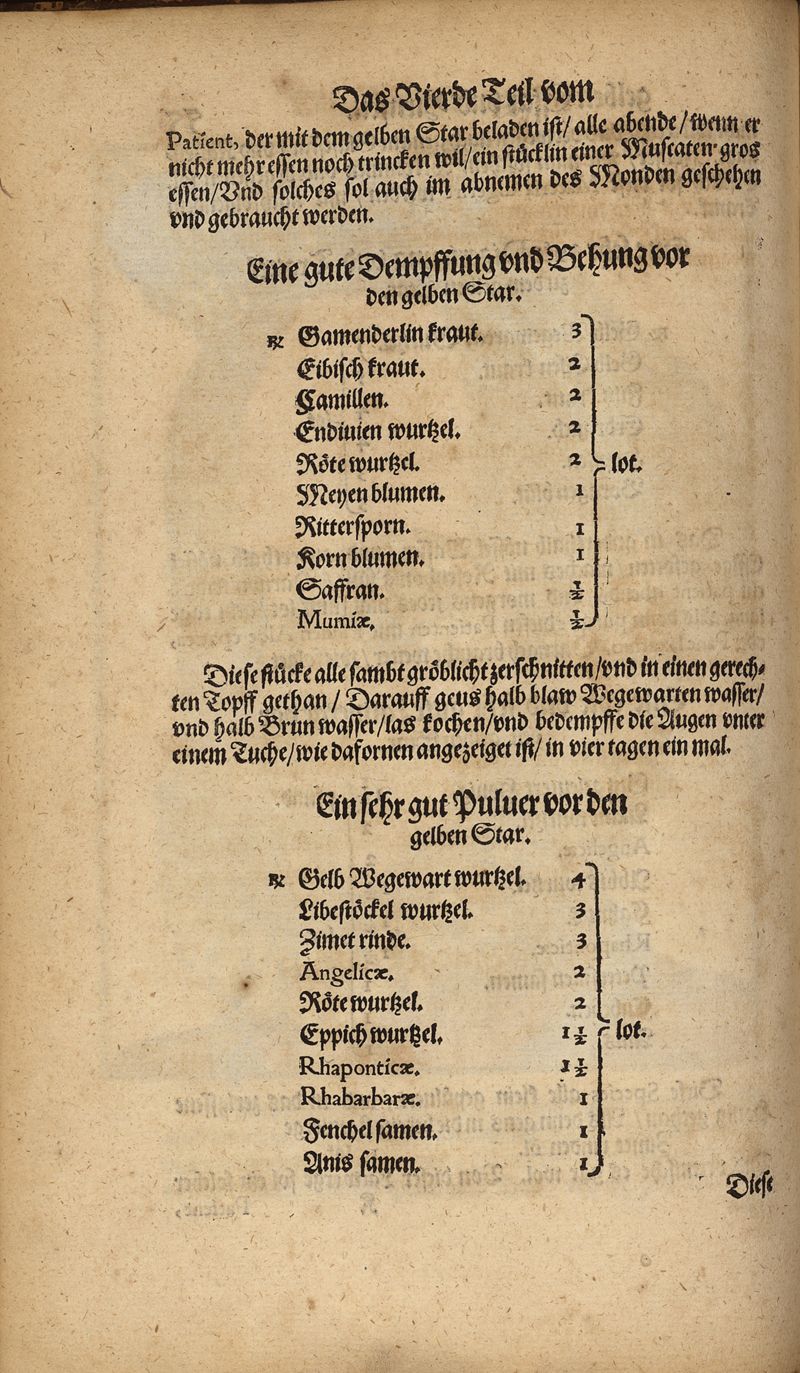 Das Vierde Teil vom
Patient, der mit dem gelben Star beladen ist/ alle abende/ wenn er
nicht mehr essen noch trincken wil/ ein stücklin einer Muscaten gros
essen/ Vnd solches sol auch im abnemen des Monden geschehen
vnd gebraucht werden.
Eine gute Dempffung vnd Behung vor
den gelben Star.
℞ Gamenderlin kraut. 3
Eibisch kraut. 2
Camillen. 2
Endiuien wurtzel. 2
Röte wurtzel. 2 lot.
Meyen blumen. 1
Rittersporn. 1
Korn blumen. 1
Saffran. ½
Mumiæ. ½
Diese stücke alle sambt gröblicht zerschnitten/ vnd in einen gerech-
ten Topff gethan/ Darauff geus halb blaw Wegewarten wasser/
vnd halb Brun wasser/ las kochen/ vnd bedempffe die Augen vnter
einem Tuche/ wie dafornen angezeiget ist/ in vier tagen ein mal.
Ein sehr gut Puluer vor den
gelben Star.
℞ Gelb Wegewart wurtzel. 4
Libestöckel wurtzel. 3
Zimet rinde. 3
Angelicæ. 2
Röte wurtzel. 2
Eppich wurtzel. 1½ lot.
Rhaponticæ. 1½
Rhabarbaræ. 1
Fenchel samen. 1
Anis samen. 1
Diese